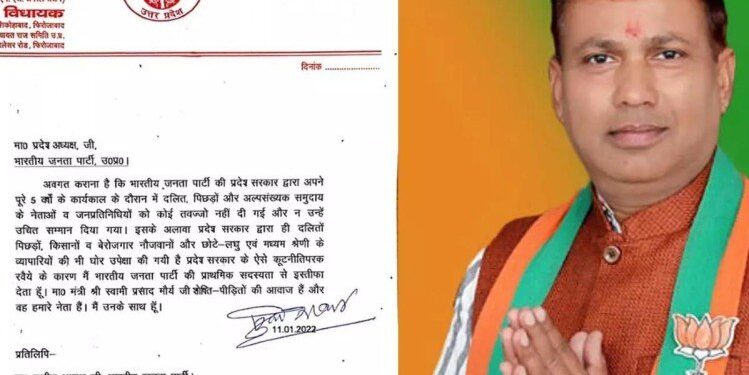 विधायक
शिकोहाबाद, फिरोजाबाद
उत्तर प्रदेश
दिनांक
मा० प्रदेश अध्यक्ष, जी,
भारतीय जनता पार्टी, उ०प्र०।
अवगत कराना है कि भारतीय जनता पार्टी की प्रदेश सरकार द्वारा अपने
पूरे 5 वर्षों के कार्यकाल के दौरान में दलित, पिछड़ों और अल्पसंख्यक समुदाय
के नेताओं व जनप्रतिनिधियों को कोई तवज्जो नहीं दी गई और न उन्हें
उचित सम्मान दिया गया। इसके अलावा प्रदेश सरकार द्वारा ही दलितों
पिछड़ों, किसानों व बेरोजगार नौजवानों और छोटे-लघु एवं मध्यम श्रेणी के
व्यापारियों की भी घोर उपेक्षा की गयी है प्रदेश सरकार के ऐसे कूटनीतिपरक
रवैये के कारण मैं भारतीय जनता पार्टी की प्राथमिक सदस्यता से इस्तीफा
देता हूँ। मा० मंत्री श्री स्वामी प्रसाद मौर्य जी शोषित-पीड़ितों की आवाज हैं और
वह हमारे नेता हैं। मैं उनके साथ हूँ।
11.01.2022
प्रतिलिपि-